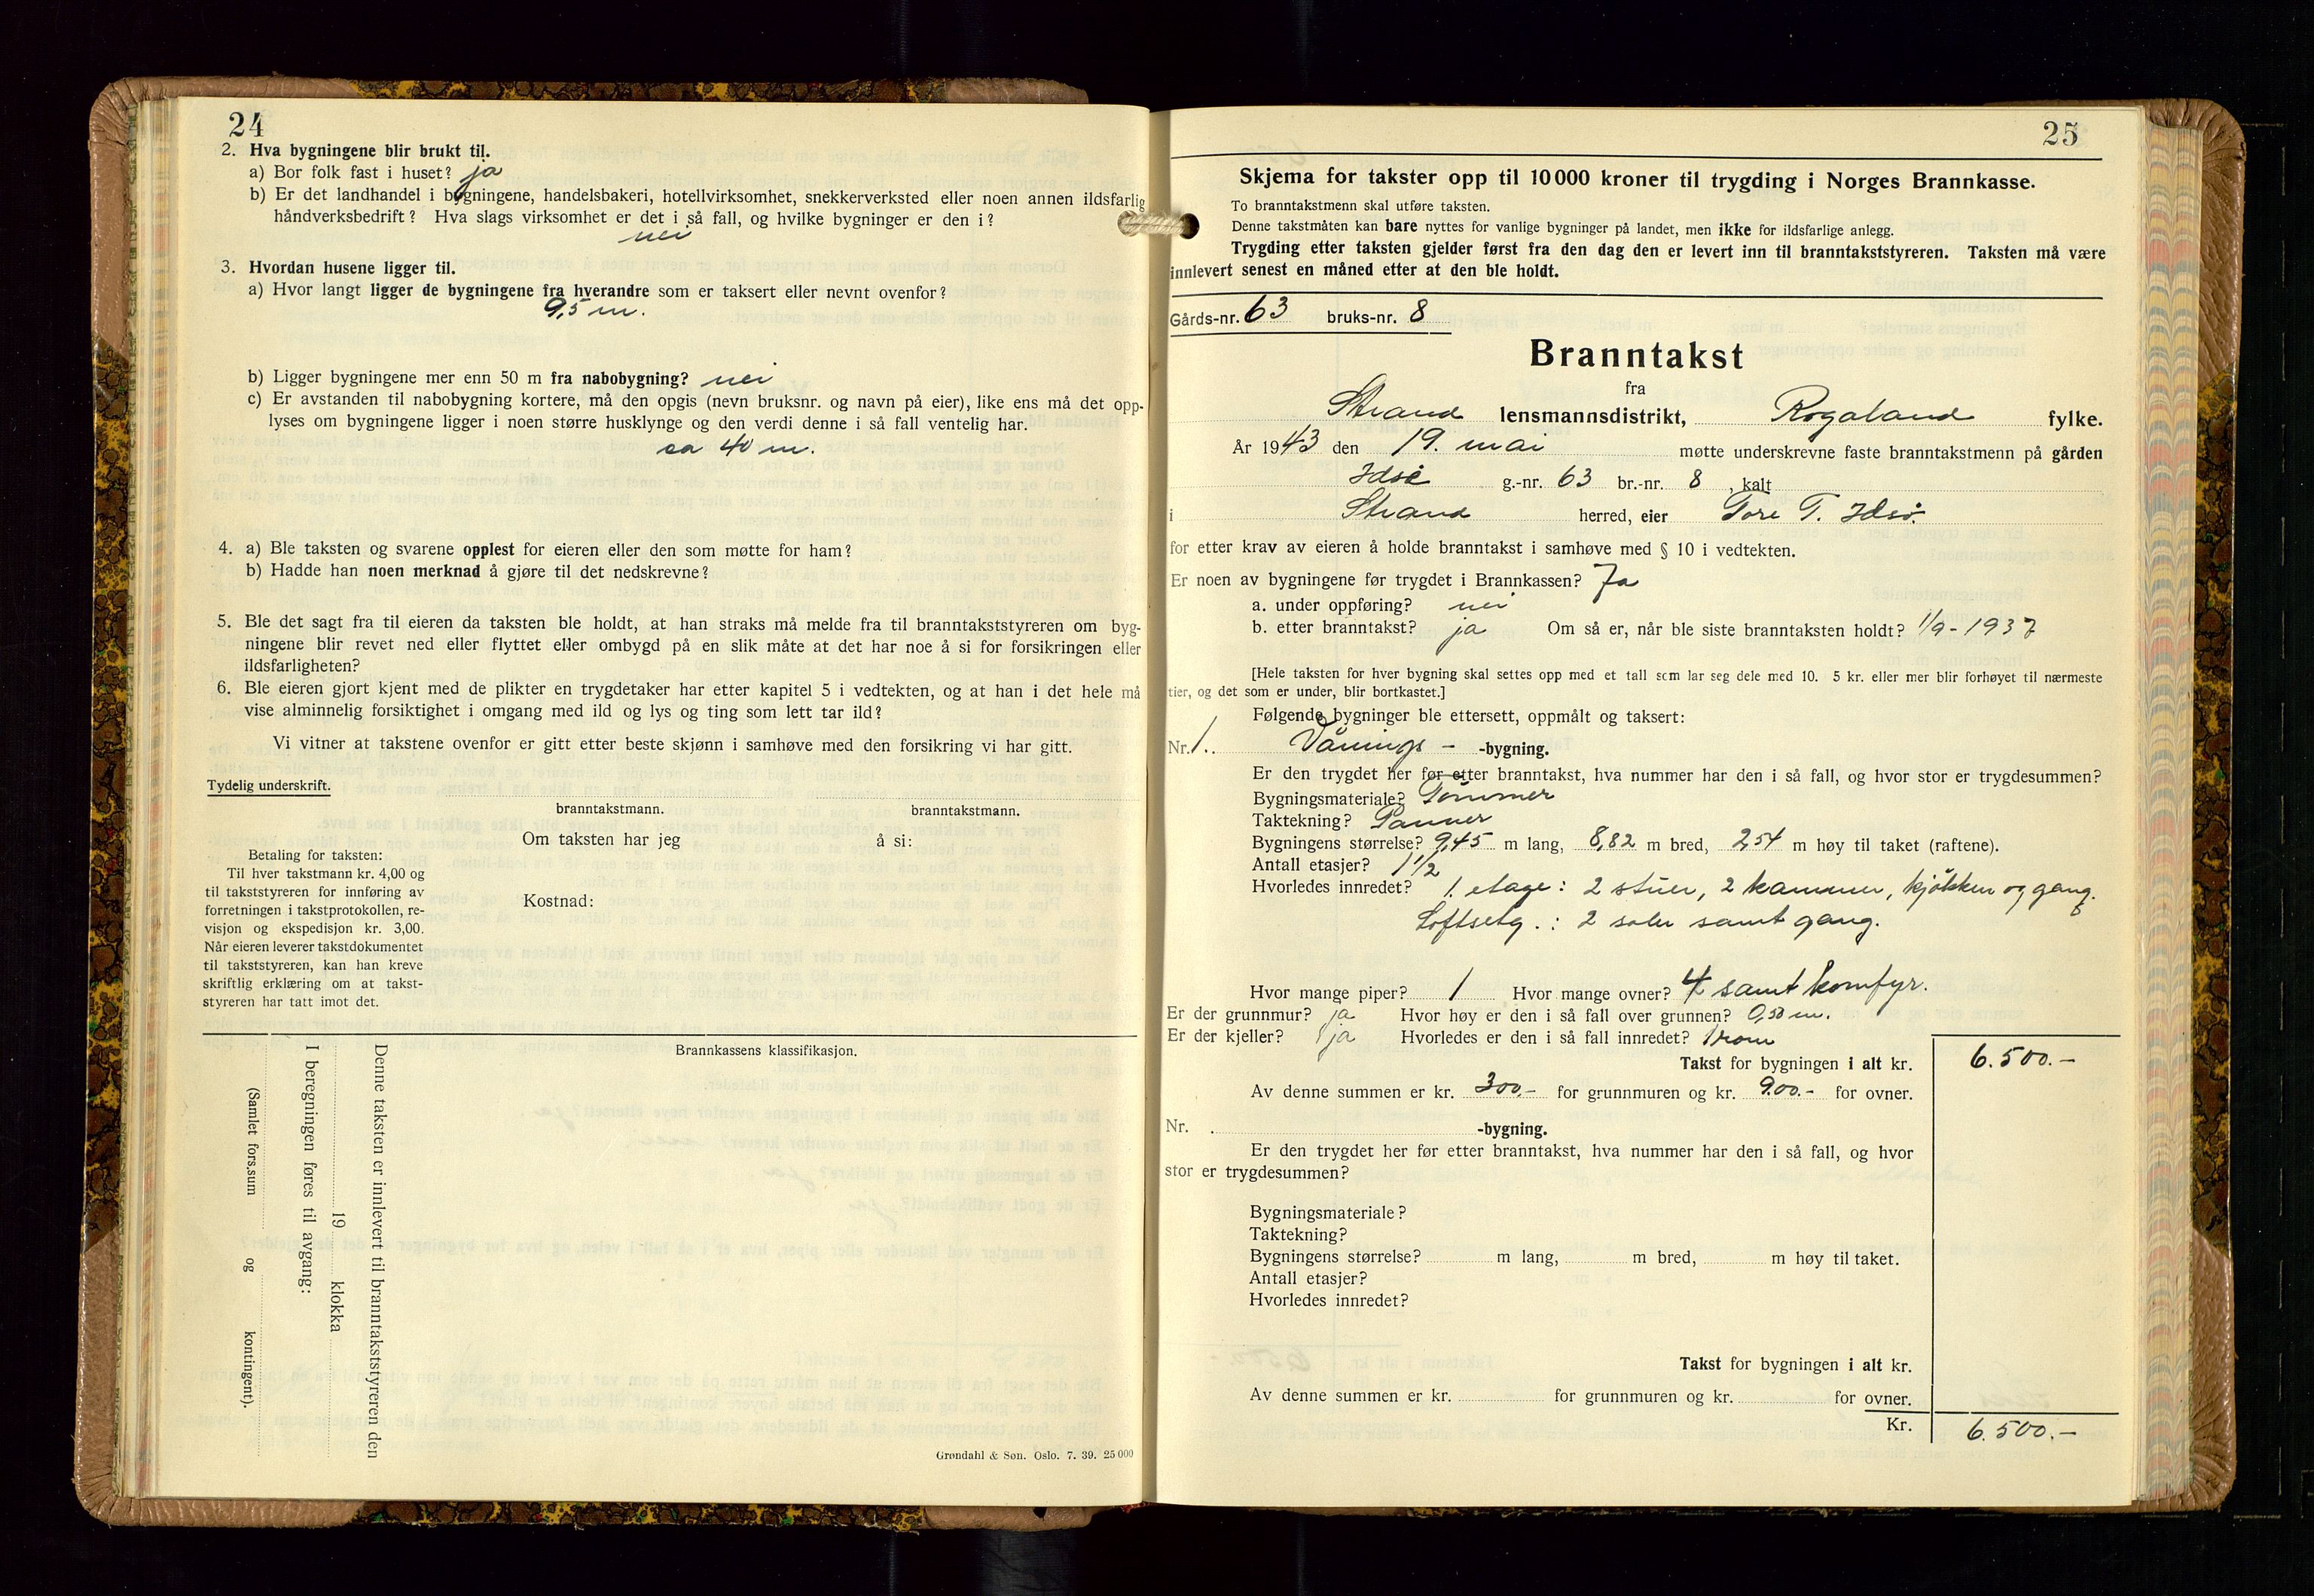 24
2. Hva bygningene blir brukt til.
a) Bor folk fast i huset? ja
b) Er det landhandel i bygningene, handelsbakeri, hotellvirksomhet, snekkerverksted eller noen annen ildsfarlig
håndverksbedrift? Hva slags virksomhet er det i så fall, og hvilke bygninger er den i?
nei
3. Hvordan husene ligger til.
a) Hvor langt ligger de bygningene fra hverandre som er taksert eller nevnt ovenfor?
9,5 m.
b) Ligger bygningene mer enn 50 m fra nabobygning? nei
c) Er avstanden til nabobygning kortere, må den opgis (nevn bruksnr. og navn på eier), like ens må det opp-
lyses om bygningene ligger i noen større husklynge og den verdi denne i så fall ventelig har.
ca 40 m.
4. a) Ble taksten og svarene opplest for eieren eller den som møtte for ham?
b) Hadde han noen merknad å gjøre til det nedskrevne?
5. Ble det sagt fra til eieren da taksten ble holdt, at han straks må melde fra til branntakststyreren om byg-
ningene blir revet ned eller flyttet eller ombygd på en slik måte at det har noe å si for forsikringen eller
ildsfarligheten?
6. Ble eieren gjort kjent med de plikter en trygdetaker har etter kapitel 5 i vedtekten, og at han i det hele må
vise alminnelig forsiktighet i omgang med ild og lys og ting som lett tar ild?
Vi vitner at takstene ovenfor er gitt etter beste skjønn i samhøve med den forsikring vi har gitt.
Tydelig underskrift.
branntakstmann. branntakstmann.
Om taksten har jeg å si:
Betaling for taksten:
Til hver takstmann kr. 4,00 og
til takststyreren for innføring av
forretningen i takstprotokollen, re-
visjon og ekspedisjon kr. 3,00.
Når eieren leverer takstdokumentet
til takststyreren, kan han kreve
skriftlig erklæring om at takst-
styreren har tatt imot det.
Kostnad:
Brannkassens klassifikasjon.
Denne taksten er innlevert til branntakststyreren den
19 klokka
I beregningen føres til avgang:
(Samlet fors.sum og kontingent).
Grøndahl & Søn. Oslo. 7. 39. 25 000
25
Skjema for takster opp til 10 000 kroner til trygding i Norges Brannkasse.
To branntakstmenn skal utføre taksten.
Denne takstmåten kan bare nyttes for vanlige bygninger på landet, men ikke for ildsfarlige anlegg.
Trygding etter taksten gjelder først fra den dag den er levert inn til branntakststyreren. Taksten må være
innlevert senest en måned etter at den ble holdt.
Gårds-nr. 63 bruks-nr. 8
Branntakst
fra
Strand lensmannsdistrikt, Rogaland fylke.
År 1943 den 19. mai møtte underskrevne faste branntakstmenn på gården
Idsø g.-nr. 63 br.-nr. 8, kalt
i Strand herred, eier Tore T. Idsø.
for etter krav av eieren å holde branntakst i samhøve med § 10 i vedtekten.
Er noen av bygningene før trygdet i Brannkassen? Ja
a. under oppføring? nei
b. etter branntakst? ja Om så er, når ble siste branntaksten holdt? 1/9-1937
[Hele taksten for hver bygning skal settes opp med et tall som lar seg dele med 10. 5 kr. eller mer blir forhøyet til nærmeste
tier, og det som er under, blir bortkastet.]
Følgende bygninger ble ettersett, oppmålt og taksert:
Nr. 1. Vånings- -bygning.
Er den trygdet her før etter branntakst, hva nummer har den i så fall, og hvor stor er trygdesummen?
Bygningsmateriale? Tømmer
Taktekning? Panner
Bygningens størrelse? 9,45 m lang, 8,82 m bred, 2,54 m høy til taket (raftene).
Antall etasjer? 1 1/2
Hvorledes innredet? 1. etage: 2 stuer, 2 kammer, kjøkken og gang.
Loftsetg.: 2 saler samt gang.
Hvor mange piper? 1 Hvor mange ovner? 4 samt komfyr.
Er der grunnmur? ja Hvor høy er den i så fall over grunnen? 0,50 m.
Er der kjeller? ja Hvorledes er den i så fall innredet? 1 rom
Takst for bygningen i alt kr. 6.500.-
Av denne summen er kr. 300.- for grunnmuren og kr. 900.- for ovner.
Nr. . -bygning.
Er den trygdet her før etter branntakst, hva nummer har den i så fall, og hvor
stor er trygdesummen?
Bygningsmateriale?
Taktekning?
Bygningens størrelse? m lang, m bred, m høy til taket.
Antall etasjer?
Hvorledes innredet?
Takst for bygningen i alt kr.
Av denne summen er kr. for grunnmuren og kr. for ovner.
Kr. 6.500.-